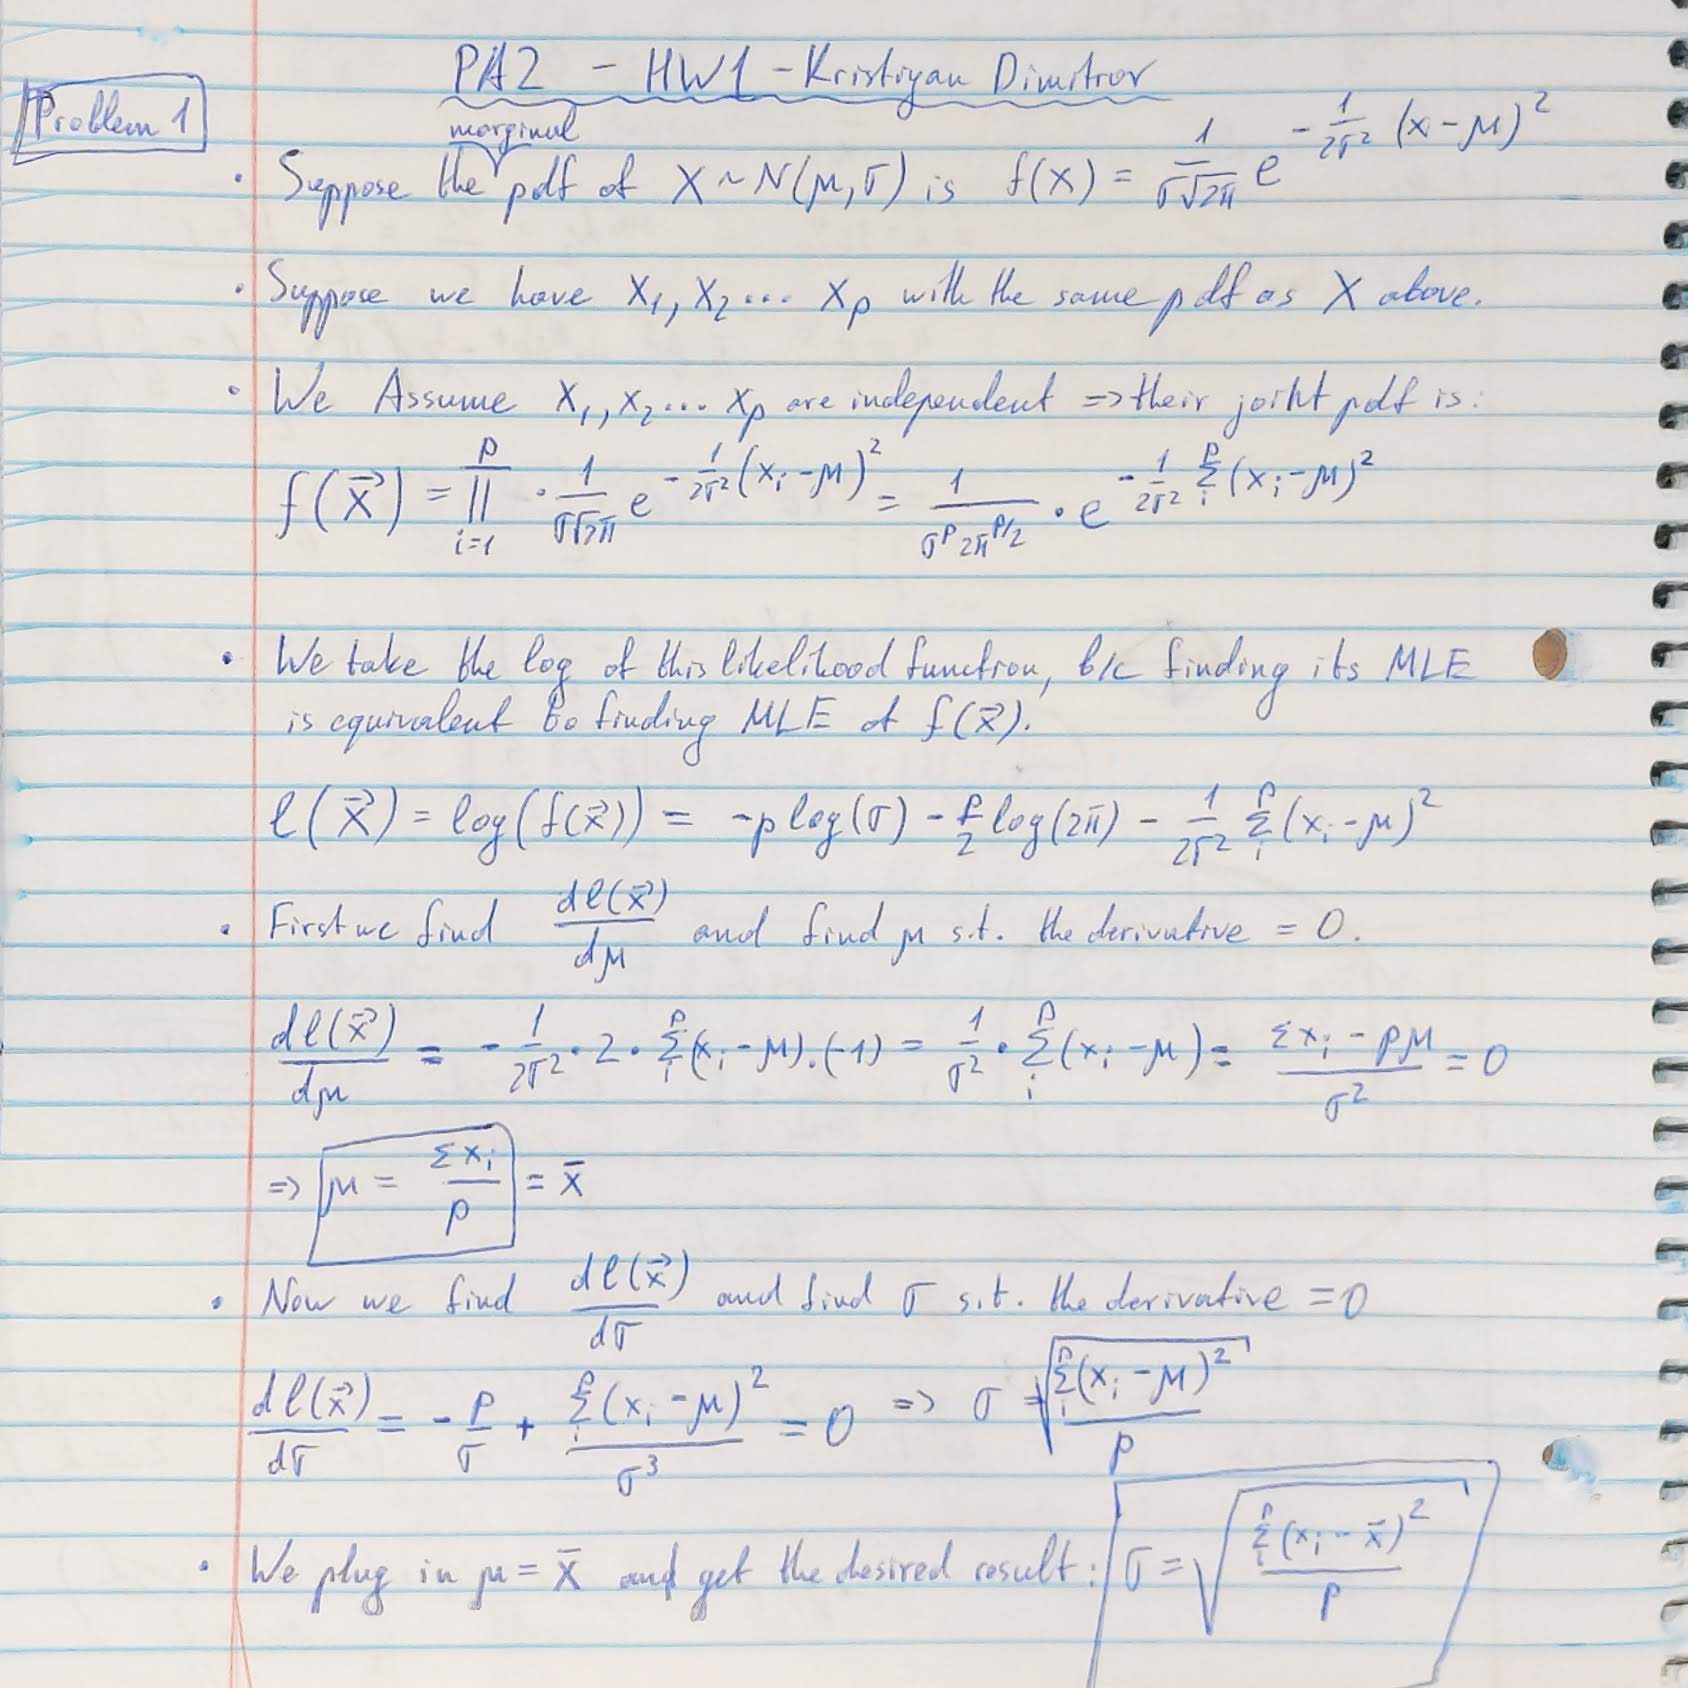 PA2 - HW1 - Kristiyan Dimitrov
Problem 1
marginal
· Suppose the pdf of X ~ N(μ, σ) is f(x) = 1/(σ√2π) e^(-1/(2σ²) (x-μ)²)
· Suppose we have X₁, X₂ ... Xp with the same pdf as X above.
· We Assume X₁, X₂ ... Xp are independent => their joint pdf is:
f(x⃗) = ∏_{i=1}^{p} · 1/(σ√2π) e^(-1/(2σ²) (xᵢ-μ)²) = 1/(σ^p 2π^(p/2)) · e^(-1/(2σ²) Σ_i^p (xᵢ-μ)²)
· We take the log of this likelihood function, b/c finding its MLE
is equivalent to finding MLE of f(x⃗).
ℓ(x⃗) = log(f(x⃗)) = -p log(σ) - p/2 log(2π) - 1/(2σ²) Σ_i^p (xᵢ-μ)²
· First we find dℓ(x⃗)/dμ and find μ s.t. the derivative = 0.
dℓ(x⃗)/dμ = - 1/(2σ²) · 2 · Σ_i^p (xᵢ-μ).(-1) = 1/σ² · Σ_i^p (xᵢ-μ) = (Σxᵢ - pμ)/σ² = 0
=> μ = Σxᵢ/p = x̄
· Now we find dℓ(x⃗)/dσ and find σ s.t. the derivative = 0
dℓ(x⃗)/dσ = - p/σ + Σ_i^p (xᵢ-μ)²/σ³ = 0 => σ = √(Σ_i^p (xᵢ-μ)²/p)
· We plug in μ = x̄ and get the desired result: σ = √(Σ_i^p (xᵢ-x̄)²/p)